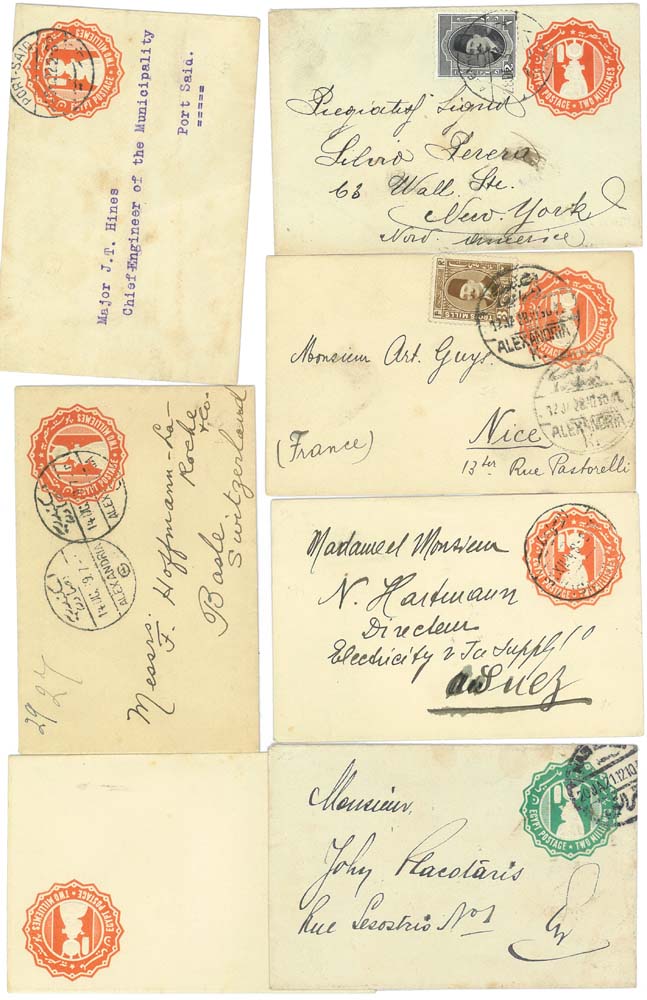 PORT-SAID
EGYPT POSTAGE * TWO MILLIEMES
Major J.T. Hines
Chief Engineer of the Municipality
Port Said.
=====
EGYPT POSTAGE * TWO MILLIEMES
Silvio Perera
63 Wall. Str.
New. York
Nord America
MILLS
ALEXANDRIA
ALEXANDRIA
Monsieur Art. Guys.
Nice
(France)
13 ter Rue Pastorelli
EGYPT POSTAGE * TWO MILLIEMES
ALEXANDRIA
Messrs.
F. Hoffmann-La-
Roche
& Co.
Basle
Switzerland
29
27
Madame et Monsieur
N. Hartmann
Directeur
Electricity & Ice Supply Co
Suez
EGYPT POSTAGE * TWO MILLIEMES
EGYPT POSTAGE * TWO MILLIEMES
Monsieur,
John Placotaris
Rue Sesostris No 1